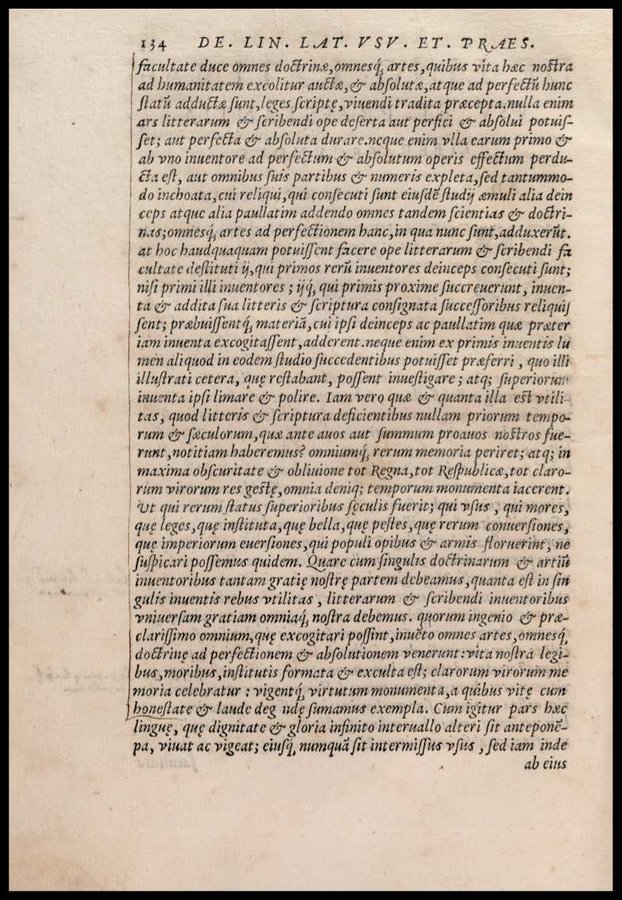 134 DE. LIN. LAT. VSV. ET. PRAES.
facultate duce omnes doctrinæ, omnesq́, artes, quibus vita hæc nostra
ad humanitatem excolitur auctæ, & absolutæ, atque ad perfectū hunc
statū adductæ sunt, leges scriptę, viuendi tradita præcepta. nulla enim
ars litterarum & scribendi ope deserta aut perfici & absolui potuis-
set; aut perfecta & absoluta durare. neque enim vlla earum primo &
ab vno inuentore ad perfectum & absolutum operis effectum perdu-
cta est, aut omnibus suis partibus & numeris expleta, sed tantummo-
do inchoata, cui reliqui, qui consecuti sunt eiusdē studij æmuli alia dein
ceps atque alia paullatim addendo omnes tandem scientias & doctri-
nas; omnesq́, artes ad perfectionem hanc, in qua nunc sunt, adduxerūt.
at hoc haudquaquam potuissent facere ope litterarum & scribendi fa
cultate destituti ij, qui primos rerū inuentores deinceps consecuti sunt;
nisi primi illi inuentores; ijq́, qui primis proxime succreuerunt, inuen-
ta & addita sua litteris & scriptura consignata successoribus reliquis
sent; præbuissentq́, materiā, cui ipsi deinceps ac paullatim quæ præter
iam inuenta excogitassent, adderent. neque enim ex primis inuentis lu
men aliquod in eodem studio succedentibus potuisset præferri, quo illi
illustrati cetera, quę restabant, possent inuestigare; atq; superiorum
inuenta ipsi limare & polire. Iam vero quæ & quanta illa est vtili-
tas, quod litteris & scriptura deficientibus nullam priorum tempo-
rum & sæculorum, quæ ante auos aut summum proauos nostros fue-
runt, notitiam haberemus? omniumq́, rerum memoria periret; atq; in
maxima obscuritate & obliuione tot Regna, tot Respublicæ, tot claro-
rum virorum res gestę, omnia deniq; temporum monumenta iacerent.
Vt qui rerum status superioribus sęculis fuerit; qui vsus, qui mores,
quę leges, quę instituta, quę bella, quę pestes, quę rerum conuersiones,
quę imperiorum euersiones, qui populi opibus & armis floruerint, ne
suspicari possemus quidem. Quare cum singulis doctrinarum & artiū
inuentoribus tantam gratię nostrę partem debeamus, quanta est in sin
gulis inuentis rebus vtilitas, litterarum & scribendi inuentoribus
vniuersam gratiam omniaq́, nostra debemus. quorum ingenio & præ-
clarissimo omnium, quę excogitari possint, inuēto omnes artes, omnesq́,
doctrinę ad perfectionem & absolutionem venerunt: vita nostra legi-
bus, moribus, institutis formata & exculta est; clarorum virorum me
moria celebratur: vigentq́, virtutum monumenta, a quibus vitę cum
honestate & laude deg ndę sumamus exempla. Cum igitur pars hæc
linguę, quę dignitate & gloria infinito interuallo alteri sit anteponē-
pa, viuat ac vigeat; eiusq́, numquā sit intermissus vsus, sed iam inde
ab eius